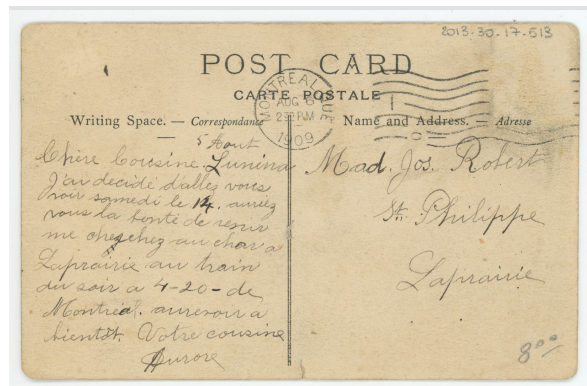 2013-30-17-513
POST CARD
CARTE POSTALE
MONTREAL QUE
AUG 6
2 PM
1909
Writing Space. — Correspondance
Name and Address. — Adresse
5 Aout
Chère Cousine Lumina
J'ai decidé d'allez vous
voir samedi le 14. auriez
vous la bonté de venir
me cherchez au char a
Laprairie au train
du soir a 4-20- de
Montréal. aurevoir a
bientôt. Votre cousine
Aurore
Mad. Jos. Robert
St. Philippe
Laprairie
8⁰⁰